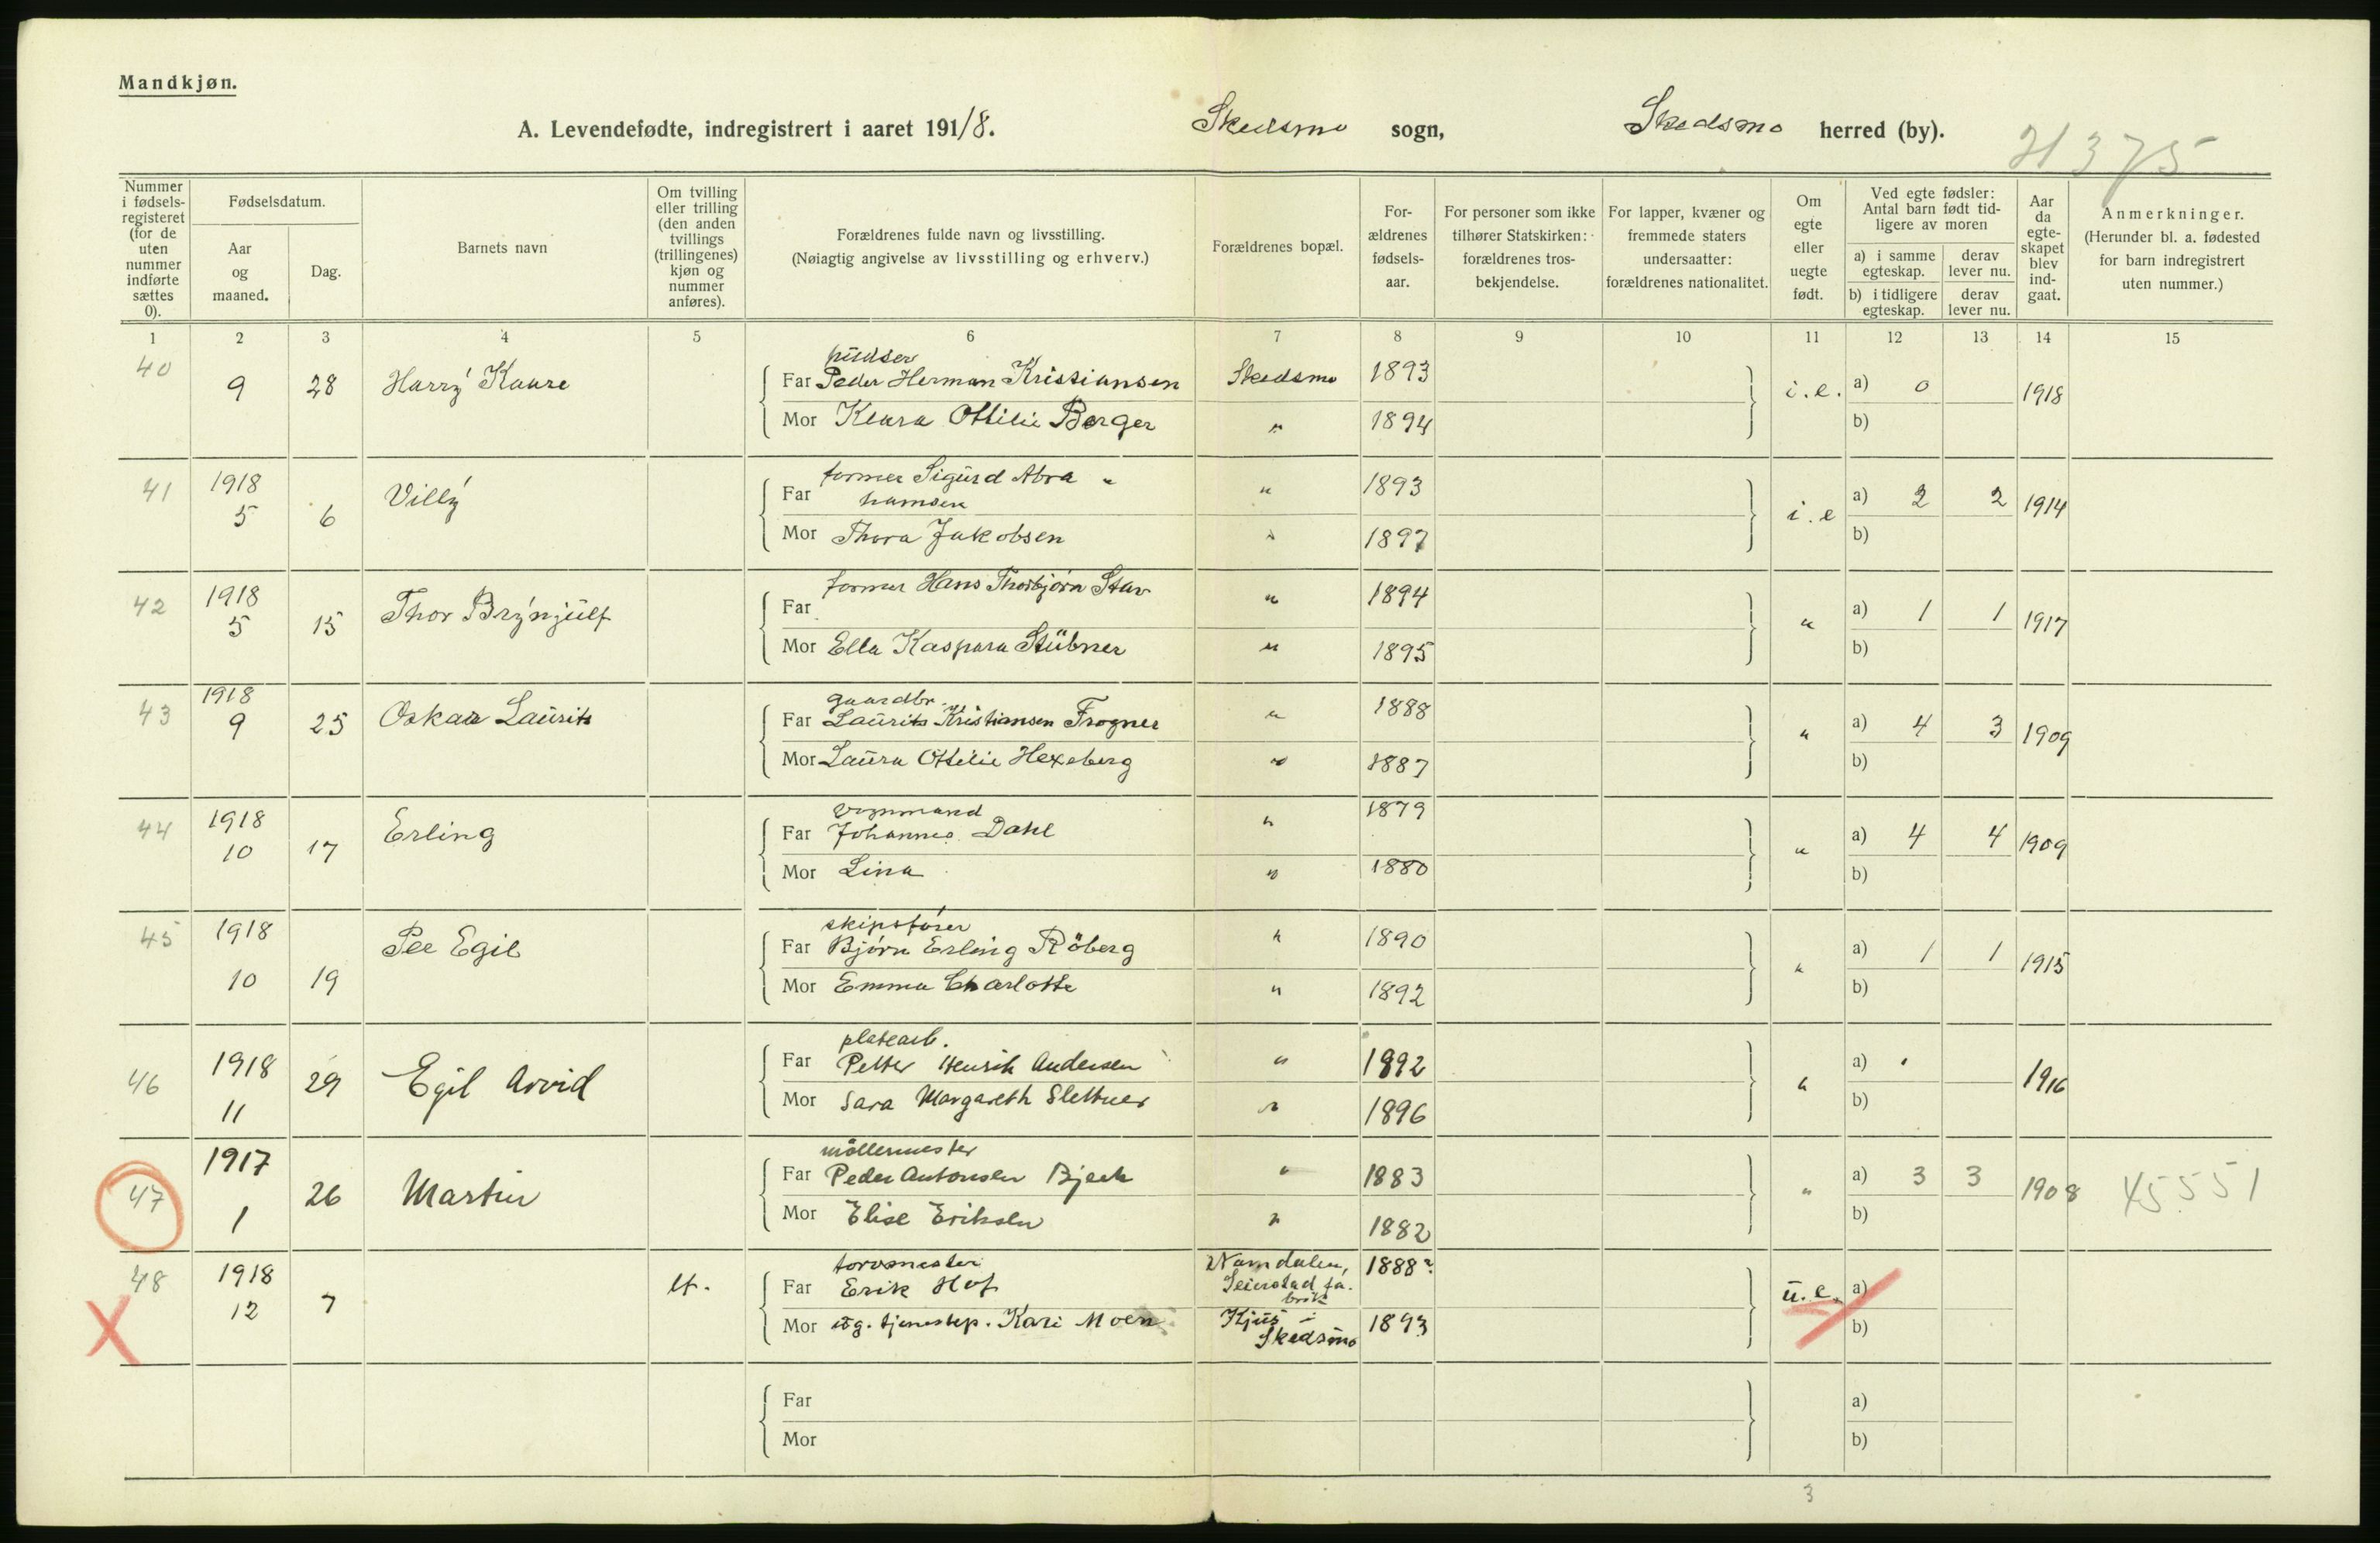 Mandkjøn.
A. Levendefødte, indregistrert i aaret 1918. Skedsmo sogn, Skedsmo herred (by).
Nummer i fødsels-registeret (for de uten nummer indførte sættes 0).
Fødselsdatum.
Aar og maaned.
Dag.
Barnets navn
Om tvilling eller trilling (den anden tvillings (trillingenes) kjøn og nummer anføres).
Forældrenes fulde navn og livsstilling.
(Nøiagtig angivelse av livsstilling og erhverv.)
Forældrenes bopæl.
For-ældrenes fødsels-aar.
For personer som ikke tilhører Statskirken: forældrenes tros-bekjendelse.
For lapper, kvæner og fremmede staters undersaatter: forældrenes nationalitet.
Om egte eller uegte født.
Ved egte fødsler: Antal barn født tid-ligere av moren
a) i samme egteskap.
derav lever nu.
b) i tidligere egteskap.
derav lever nu.
Aar da egte-skapet blev ind-gaat.
Anmerkninger.
(Herunder bl. a. fødested for barn indregistrert uten nummer.)
1 2 3 4 5 6 7 8 9 10 11 12 13 14 15
40 9 28 Harry Kaare
pudser
Far Peder Herman Kristiansen Skedsmo 1893 i.e. a) 0 1918
Mor Klara Ottilie Berger " 1894 b)
41 1918 5 6 Villy
former Sigurd Abra
Far hamsen " 1893 i.e a) 2 2 1914
Mor Thora Jakobsen " 1897 b)
42 1918 5 15 Thor Brynjulf
former Hans Thorbjørn Stav
Far " 1894 " a) 1 1 1917
Mor Ella Kaspara Stübner " 1895 b)
43 1918 9 25 Oskar Laurits
gaardbr.
Far Laurits Kristiansen Frogner " 1888 " a) 4 3 1909
Mor Laura Ottilie Hexeberg " 1887 b)
44 1918 10 17 Erling
Far Johannes Dahl " 1879 " a) 4 4 1909
Mor Lina " 1880 b)
45 1918 10 19 Per Egil
skipsfører
Far Bjørn Erling Röberg " 1890 " a) 1 1 1915
Mor Emma Charlotte " 1892 b)
46 1918 11 29 Egil Arvid
platearb.
Far Petter Henrik Andersen " 1892 " a) 1916
Mor Sara Margareth Slettner " 1896 b)
47 1917 1 26 Martin
möllermester
Far Peder Antonsen Bjerk " 1883 " a) 3 3 1908
Mor Elise Eriksen " 1882 b)
48 1918 12 7
torvmester
Far Erik Hof Namdalen, 1888? u.e. a)
Seierstad fa.
brik
Mor ug. tjenestep. Kari Moen Kjus i 1893 b)
Skedsmo
Far a)
Mor b)
3